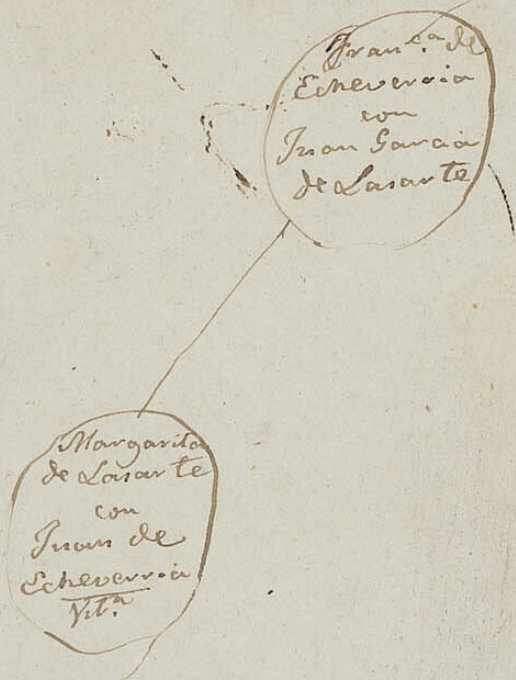 Fran.ca de
Echeverria
con
Juan Garcia
de Lasarte
Margarita
de Lasarte
con
Juan de
Echeverria